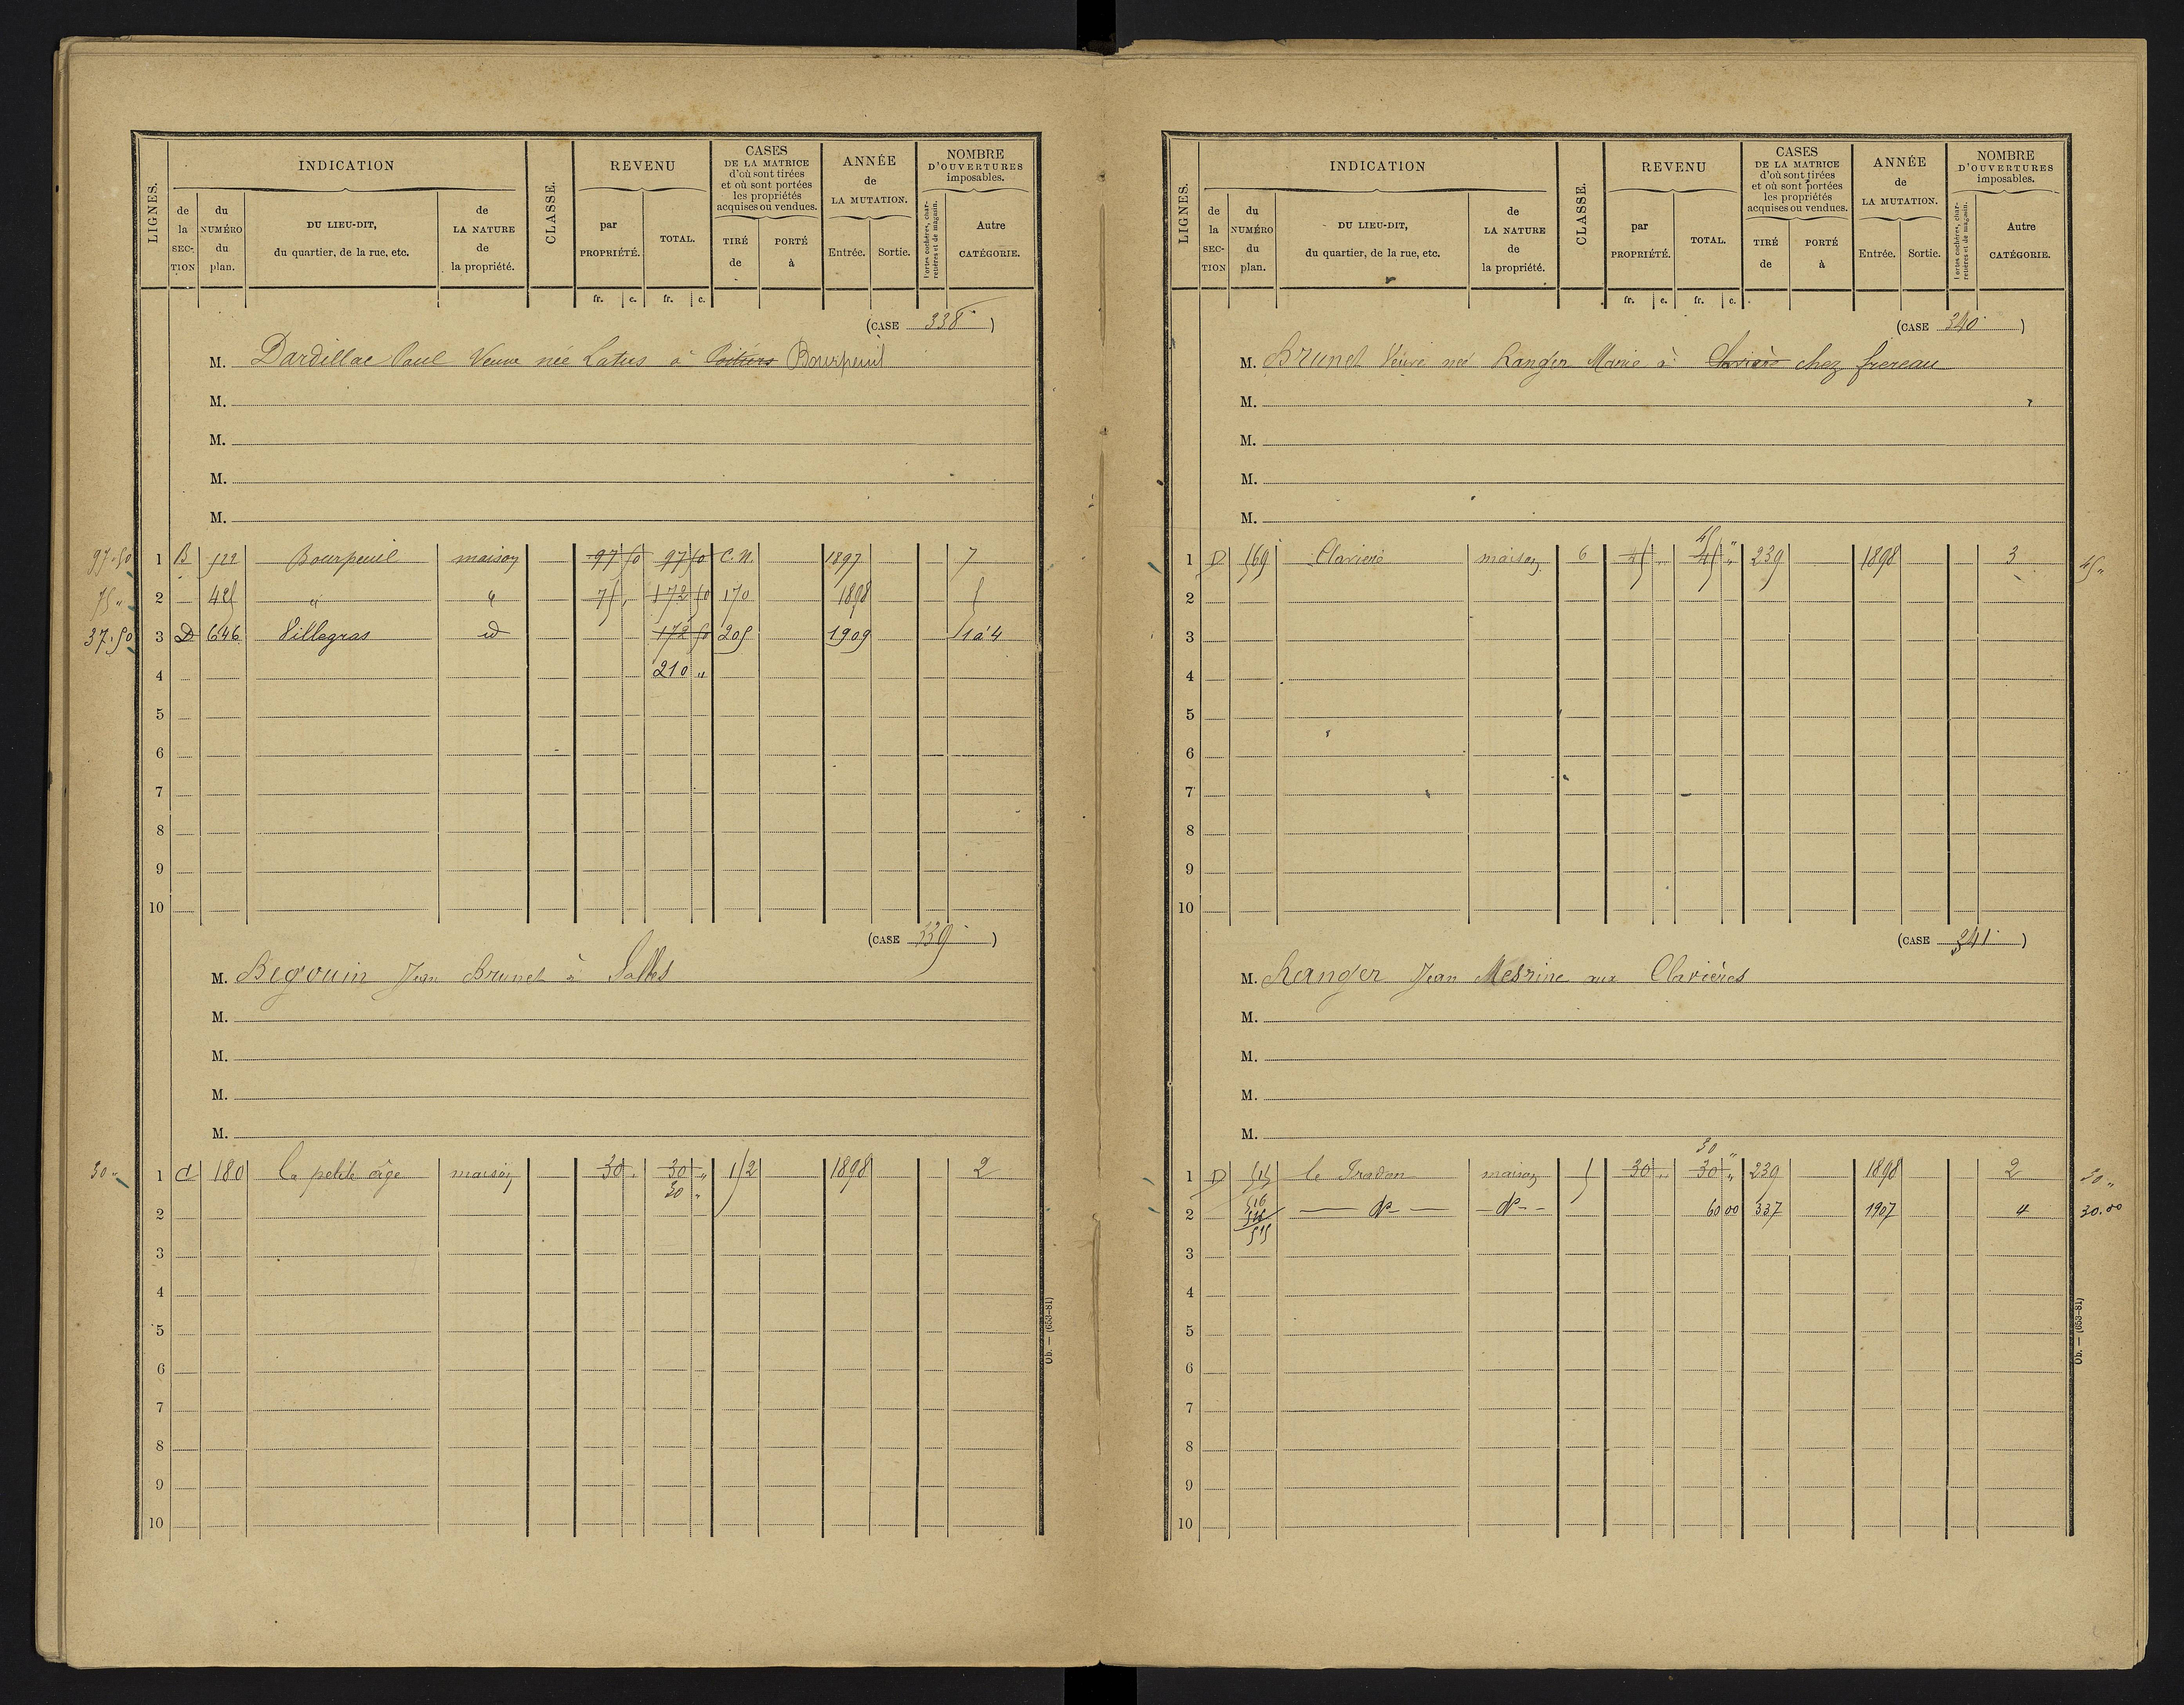 LIGNES.
INDICATION
CLASSE.
REVENU
CASES DE LA MATRICE d'où sont tirées et où sont portées les propriétés acquises ou vendues.
ANNÉE de LA MUTATION.
NOMBRE D'OUVERTURES imposables.
de la SEC-TION
du NUMÉRO du plan.
DU LIEU-DIT, du quartier, de la rue, etc.
de LA NATURE de la propriété.
par PROPRIÉTÉ.
TOTAL.
TIRÉ de
PORTÉ à
Entrée.
Sortie.
Portes cochères, charretières et de magasin.
Autre CATÉGORIE.
fr. c. fr. c.
(CASE 338)
M. Dardillac Paul Veuve née Latus à Poitiers Bourpeuil
M.
M.
M.
M.
97.50 1 B 522 Bourpeuil maison 97 50 97 50 C.N. 1897 7
75 " 2 425 " " 75 " 172 50 170 1898 5
37.50 3 D 646 Villegras id 172 50 205 1909 1 à 4
4 210 "
5
6
7
8
9
10
(CASE 339)
M. Begouin Jean Brunet à Salles
M.
M.
M.
M.
30 " 1 C 180 La petite âge maison 30 " 30 " 152 1898 2
30 "
2
3
4
5
6
7
8
9
10
Ob. — (653-81)
LIGNES.
INDICATION
CLASSE.
REVENU
CASES DE LA MATRICE d'où sont tirées et où sont portées les propriétés acquises ou vendues.
ANNÉE de LA MUTATION.
NOMBRE D'OUVERTURES imposables.
de la SEC-TION
du NUMÉRO du plan.
DU LIEU-DIT, du quartier, de la rue, etc.
de LA NATURE de la propriété.
par PROPRIÉTÉ.
TOTAL.
TIRÉ de
PORTÉ à
Entrée.
Sortie.
Portes cochères, charretières et de magasin.
Autre CATÉGORIE.
fr. c. fr. c.
(CASE 340)
M. Brunet Veuve née Ranger Marie à Clavière chez frereau
M.
M.
M.
M.
45 "
1 D 569 Claviere maison 6 45 " 45 " 239 1898 3 45 "
2
3
4
5
6
7
8
9
10
(CASE 341)
M. Ranger Jean Mesrine aux Clavières
M.
M.
M.
M.
30 "
1 D 515 le Tradon maison 5 30 " 30 " 239 1898 2 30 "
516
2 do do 60 00 337 1907 4 30.00
515
3
4
5
6
7
8
9
10
Ob. — (653-81)